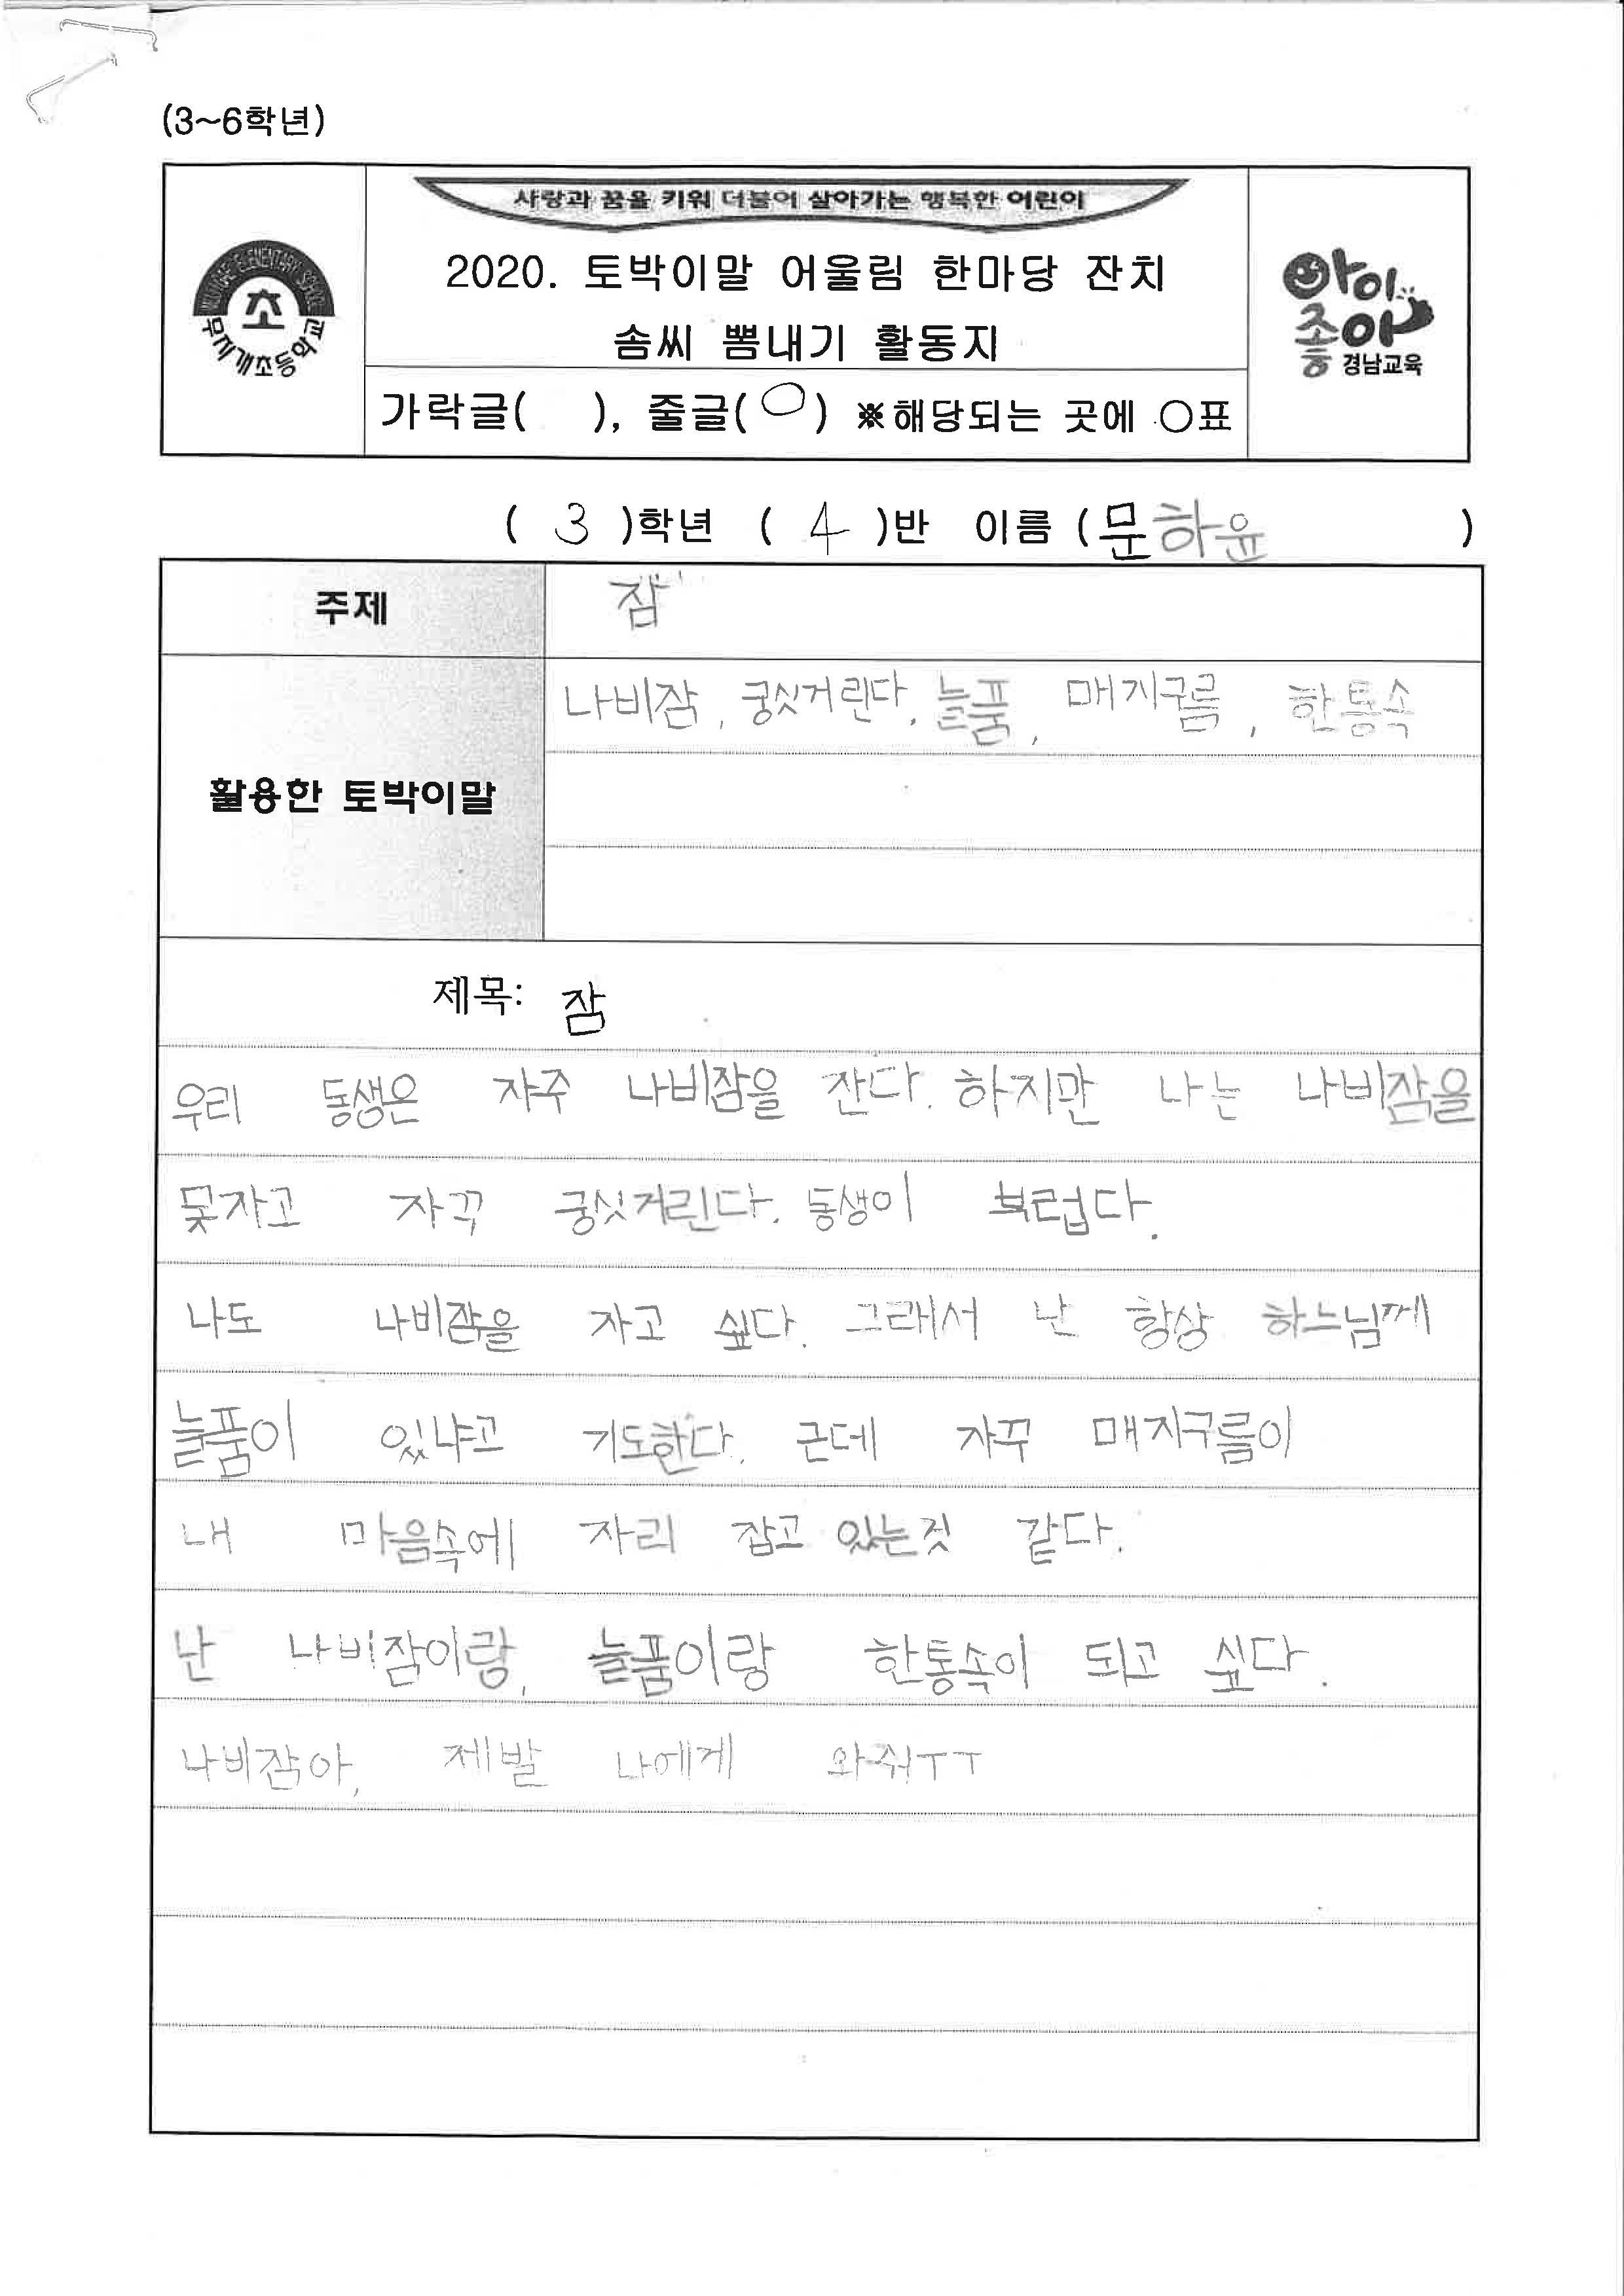 (3~6학년)
사랑과 꿈을 키워 더불어 살아가는 행복한 어린이
2020. 토박이말 어울림 한마당 잔치
솜씨 뽐내기 활동지
MUJIGAE ELEMENTARY SCHOOL
초
무지개초등학교
아이좋아
경남교육
가락글(   ), 줄글(○) ※해당되는 곳에 ○표
( 3 )학년 ( 4 )반 이름 (문하윤 )
주제 잠
활용한 토박이말 나비잠, 궁싯거린다, 늘품, 매지구름, 한통속
제목: 잠
우리 동생은 자주 나비잠을 잔다. 하지만 나는 나비잠을
못자고 자꾸 궁싯거린다. 동생이 부럽다.
나도 나비잠을 자고 싶다. 그래서 난 항상 하느님께
늘품이 있냐고 기도한다. 근데 자꾸 매지구름이
내 마음속에 자리 잡고 있는것 같다.
난 나비잠이랑, 늘품이랑 한통속이 되고 싶다.
나비잠아, 제발 나에게 와줘ㅜㅜ